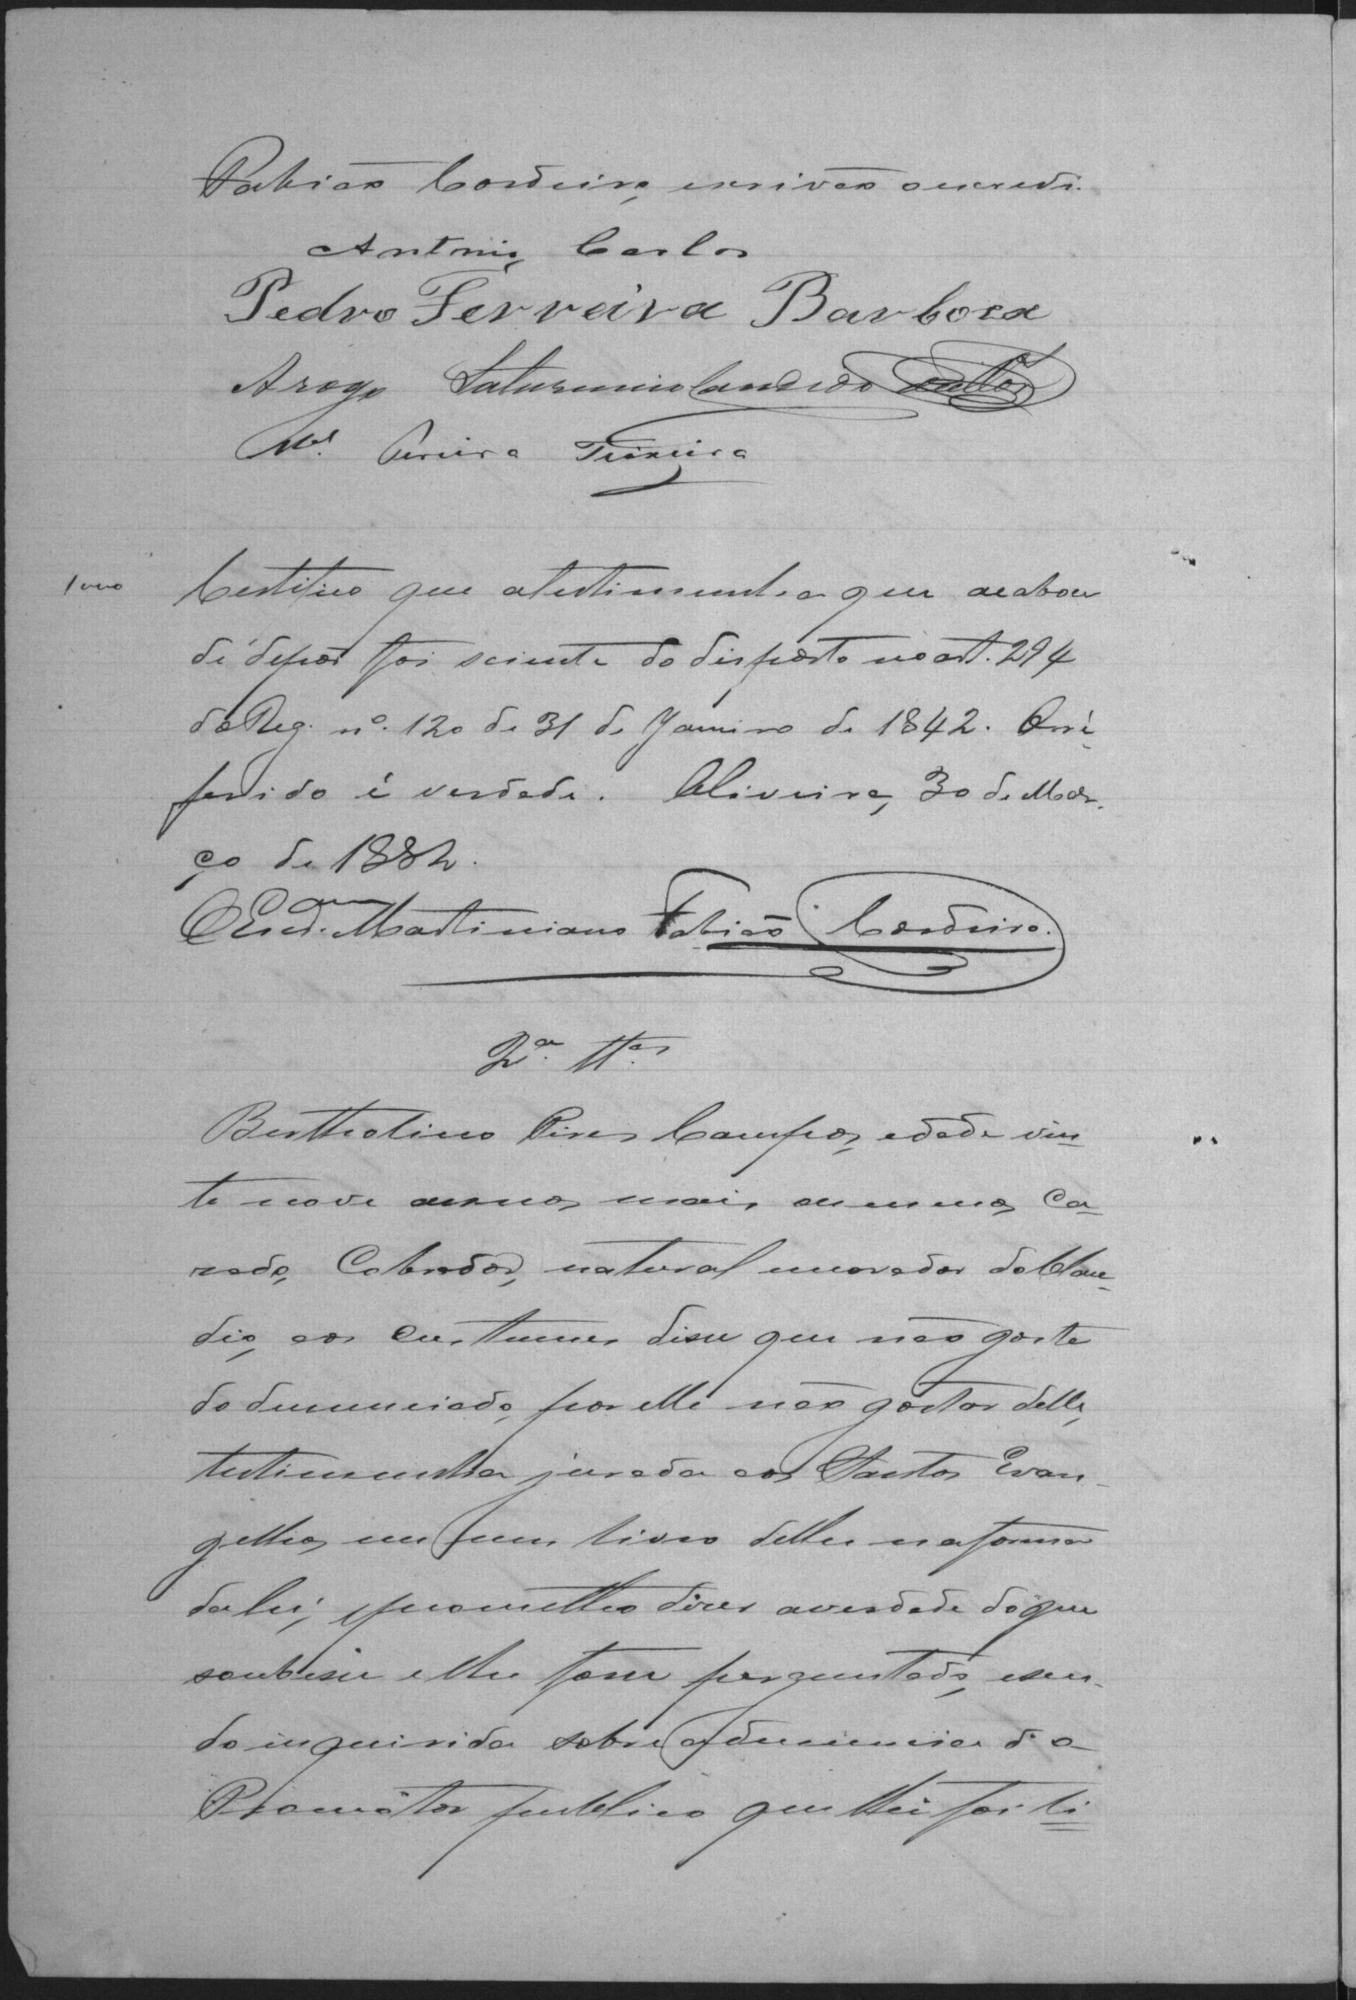 Fabião Cordeiro, escrivão o escrevi.
Antonio Carlos
Pedro Ferreira Barbosa
Arogo Saturnino Candido
Mel. Pereira Teixeira
1000 Certifico que atestimunha que acabou
de depor foi sciente do disposto no art. 294
do Reg. nº. 120 de 31 de Janeiro de 1842. Orre-
ferido é verdade. Oliveira, 30 de Mar-
ço de 1882.
OEscm. Martiniano Fabião Cordeiro.
2ª. Ttª.
Bertholino Pires Campos, edade vin-
te nove annos mais ou menos, Ca-
zado, Cobrador, natural morador do Clau-
dio, aos custumes disse que não gosta
do denunciado, por elle não gostar delle,
testimunha jurada aos Santos Evan-
gelhos, em um livro delles na forma
da lei, e prometteo dizer averdade do que
soubesse e lhe fosse perguntado, e sen-
do inquirida sobre a denuncia do
Promotor publico que lhe foi li-